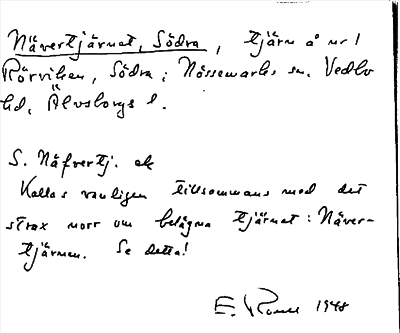 Nävertjärnet, Södra, tjärn å nr 1
Rörviken, Södra; Nössemarks sn. Vedbo
hd, Älvsborgs l.
S. Näfvertj. ek
Kallas vanligen tillsammans med det
strax norr om belägna tjärnet: Näver-
tjärnen. Se detta!
E. 1948